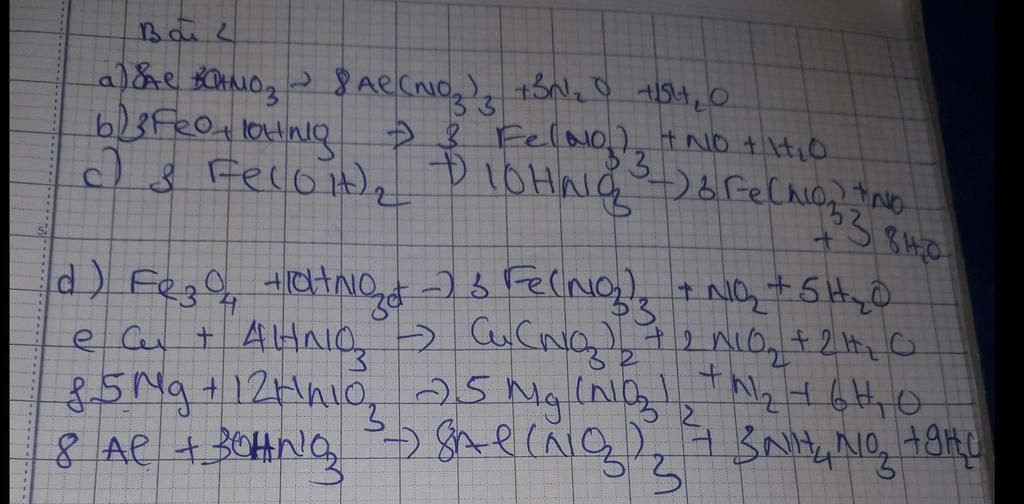 Bài 2
a) 8Al + 30HNO3 → 8Al(NO3)3 + 3N2O + 15H2O
b) 3FeO + 10HNO3 → 3 Fe(NO3)3 + NO + H2O
c) 3 Fe(OH)2 + 10HNO3 → 3Fe(NO3)3 + NO
+ 8H2O
d) Fe3O4 + 10HNO3đ → 3 Fe(NO3)3 + NO2 + 5H2O
e Cu + 4HNO3 → Cu(NO3)2 + 2NO2 + 2H2O
8 5Mg + 12HNO3 → 5Mg(NO3)2 + N2 + 6H2O
8 Al + 30HNO3 → 8Al(NO3)3 + 3NH4NO3 + 9H2O